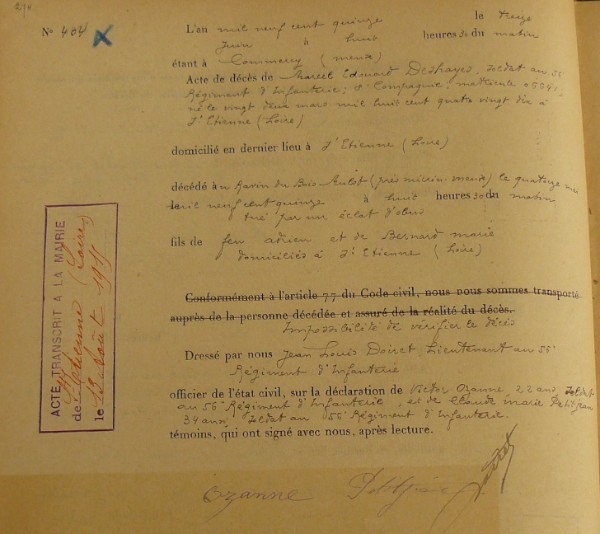 210
N° 404
L'an mil neuf cent quinze le treize
Juin à huit heures 30 du matin
étant à Commercy (Meuse)
Acte de décès de Marcel Edouard Deshayes, soldat au 55e
Régiment d'Infanterie, Compagnie, matricule
né le vingt deux mars mil huit cent quatre vingt dix à
St Etienne (Loire)
domicilié en dernier lieu à St Etienne (Loire)
décédé au Ravin du Bois (près Meuse) le quatorze mai
mil neuf cent quinze à huit heures 30 du matin
tué par un éclat d'obus
fils de feu adrien et de Bernard marie
domiciliés à St Etienne (Loire)
Conformément à l'article 77 du Code civil, nous nous sommes transporté
auprès de la personne décédée et assuré de la réalité du décès.
Impossibilité de vérifier le décès
Dressé par nous Jean Louis Doiret, Lieutenant au 55e
Régiment d'Infanterie
officier de l'état civil, sur la déclaration de Victor Ozanne, 22 ans, soldat
au 55e Régiment d'Infanterie, et de Claude Marie Petitjean
34 ans, soldat au 55e Régiment d'Infanterie.
témoins, qui ont signé avec nous, après lecture.
Ozanne Petitjean Doiret
ACTE TRANSCRIT A LA MAIRIE
de St Etienne (Loire)
le 13 Août 1915